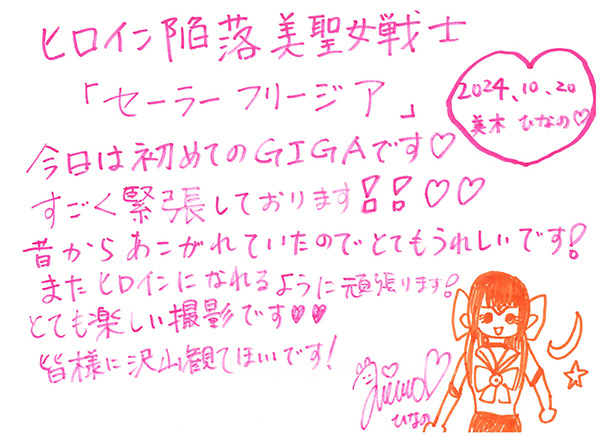 ヒロイン陥落美聖女戦士
「セーラーフリージア」
2024.10.20
美木 ひなの♡
今日は初めてのGIGAです♡
すごく緊張しております!!♡♡
昔からあこがれていたのでとてもうれしいです!
またヒロインになれるように頑張ります!
とても楽しい撮影です♥♥
皆様に沢山観てほしいです!
Hinano♡
ひなの